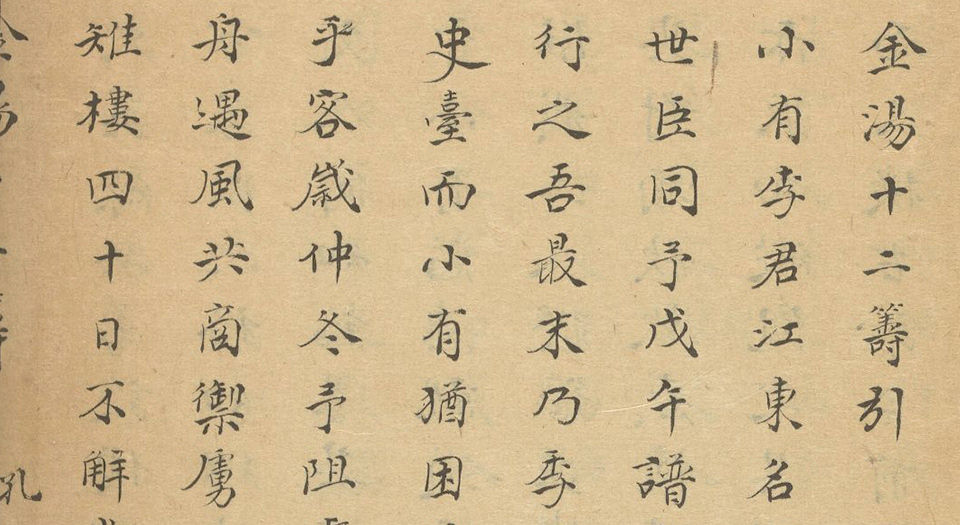 金湯十二籌引
小有李君江東名
世臣同予戊午譜
行之吾最末乃季
史臺而小有猶困
乎客歲仲冬予阻
舟遇風共商禦虜
雉樓四十日不解